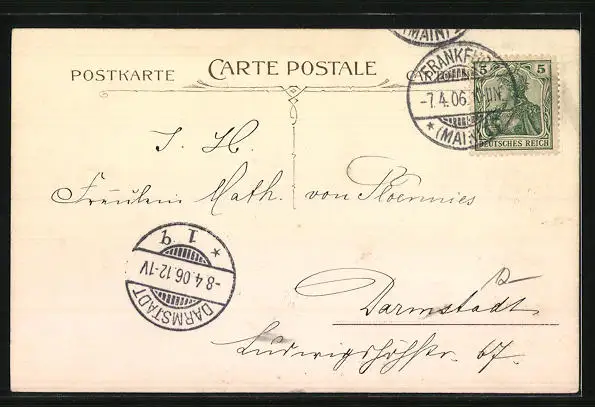 (MAIN)
POSTKARTE CARTE POSTALE
FRANKFURT
-7.4.06.
* (MAIN)
5 5
DEUTSCHES REICH
I. H.
Fräulein Math. von Ploennies
* 1 q
-8.4.06.12-1V
DARMSTADT
Darmstadt
Ludwigshöhstr. 67.